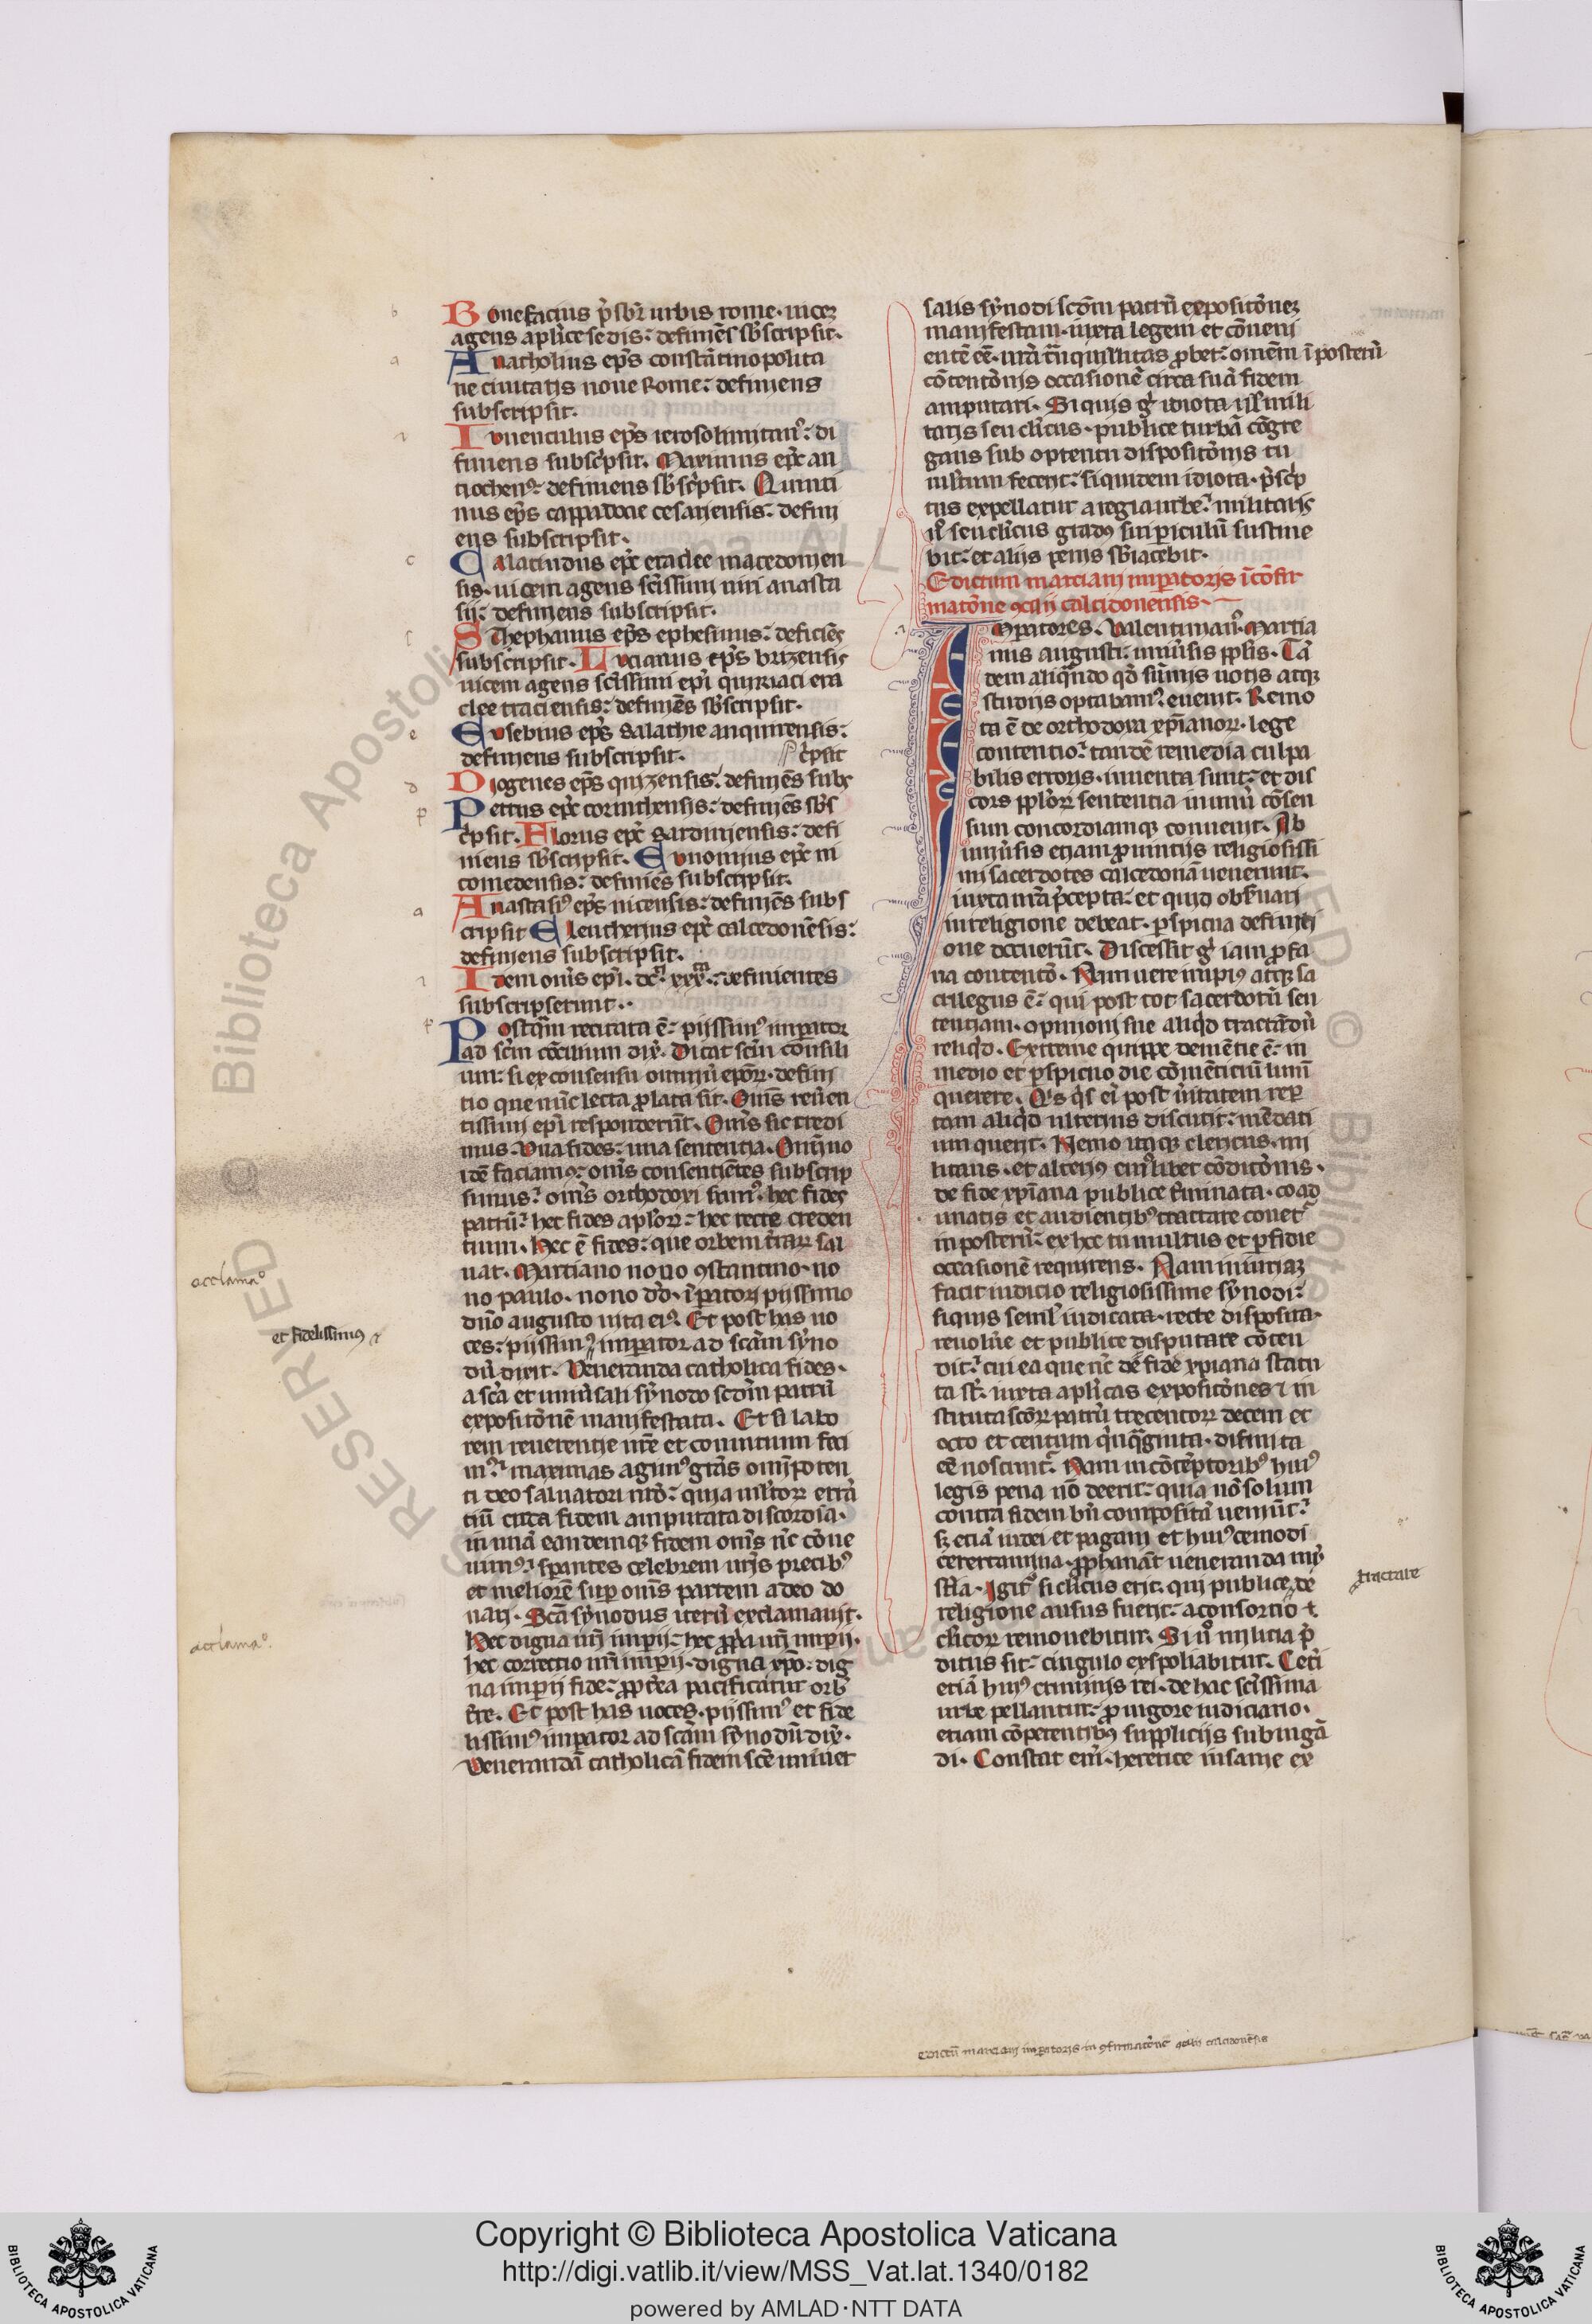 Bonefacius p̉sbr̉ urbis rome· uicez
agens apl̉ice sedis: definiẽs sb̉scripsit·
Anatholius ep̃s constãtinopolita
ne ciuitatis noue Rome: definiens
subscripsit·
Iuuenculus ep̃s ierosolimitanꝰ: di
finiens subscͥpsit. Maximus ep̃c an
tiochenꝰ: definiens sb̉scͥpsit. Quinti
nus ep̃s cappadocie cesariensis: defini
ens subscripsit·
Calatiudus ep̃c eraclee macedonien
sis· uicem agens scissimi uiri anasta
sij: definiens subscripsit·
Sthephanus ep̃s ephesinus: deficiẽs
subscripsit· Lucianus ep̃s brizensis
uicem agens scissimi ep̃i quiriaci era
clee traciensis: definiẽs sb̉scripsit·
Eusebius ep̃s Galathie anquirensis:
definiens subscripsit· cͥpsit
Diogenes ep̃s quizensis: definiẽs subs
Petrus ep̃c corinthensis: definiẽs sb̉s
cͥpsit· Florus ep̃c sardiniensis: defi
niens sb̉scripsit· Eunomius ep̃c ni
comedensis: definiẽs subscripsit·
Anastasiꝰ ep̃s nicensis: definiẽs subs
cripsit Eleutherius ep̃c calcedonẽsis:
definiens subscripsit·
Idem om̃s ep̃i· dc̃ti xxx: definientes
subscripserunt··
Postq̃m recitata ẽ: piissimꝰ imp̃ator
ad scm̃ cõcilium dix̃· Dicat scm̃ consili
um: si ex consensu omniũ ep̃orꝝ· defini
tio que nũc lecta ꝓlata sit· Om̃s reuẽren
tissimi ep̃i responderũt· Om̃s sic credi
mus· Vna fides: una sententia· Om̃ino
idẽ faciamꝰ: om̃s consentiẽtes subscrip
simus: om̃s orthodoxi sumꝰ· hec fides
patrũ: hec fides apl̉orꝝ: hec recte creden
tium· Hec ẽ fides: que orbem t̃rarꝝ sal
uat· Martiano nouo ꝯstantino· no
no paulo· nono dd̉· ĩp̃atori piissimo
dñõ augusto uita eiꝰ· Et post has uo
ces: piissimꝰ imp̃ator ad scãm sỹno
dũ dixit· Veneranda catholica fides·
a scã et uniũsali sỹnodo scdm̃ patrũ
expositõnẽ manifestata· Et si labo
rem reuerentie ur̃e et conuentum feci
mꝰ: maximas agimꝰ gr̃as om̃ipoten
ti deo saluatori nr̃o: quia multorꝝ errã
tiũ circa fidem amputata discordia·
in unã eandemqꝫ fidem om̃s nũc cõue
nimꝰ: sperantes celebrem ur̃is precibꝰ
et meliorẽ sup̃ om̃s partem a deo do
nari· Scã sỹnodus iterũ exclamauit·
Hec digna ur̃i imperij: hec ꝓp̃a ur̃i imp̃ij·
hec correctio ur̃i imp̃ij· digna xp̃o: dig
na imperij fide: ꝓpt̃ea pacificatur orb̉
t̃re· Et post has uoces· piissimꝰ et fide
lissimꝰ imp̃ator ad scãm sỹnodũ dix̃·
Venerandã catholicã fidem scẽ uniuer
acclamaᵒ
et fidelissimꝰ
acclamaᵒ·
salis sỹnodi scõm patrũ expositõnez
manifestam· iuxta legem et cõueni
entẽ eẽ· ur̃a tñquillitas ꝓbet: om̃em ĩ posterũ
cõtentõnis occasionẽ circa suã fidem
amputari· Siquis gͥ idiota ul̉ mili
taris seu cl̉icus· publice turbã cõgre
gans sub optentu dispositõnis tu
multum fecerit: siquidem idiota· p̉scͥp
tus expellatur a regia urbe: militaris
uͦ seu cl̉icus gradꝰ sui periculũ sustine
bit: et aliis penis sb̉iacebit·
Edictum marciani imp̃atoris ĩ cõfir
matõne ꝯcilij calcidonensis·
Imp̃atores· Valentinianꝰ· Martia
nus augusti: uniũsis pp̃lis· Tã
dem aliq̃ndo qd̉ sũmis uotis atqꝫ
studiis optabamꝰ: euenit· Remo
ta ẽ de orthodoxa xp̃ianorꝝ· lege
contentio: tandẽ remedia culpa
bilis erroris· inuenta sunt: et dis
cors pp̃lorꝝ sententia in unũ cõsen
sum concordiamqꝫ conuenit· Ab
uniũsis etiam ꝓuintiis religiosissi
mi sacerdotes calcedonã uenerunt·
iuxta nr̃a p̉cepta: et quid obs̃uari
in religione debeat· ꝑspicua definiti
one docuerũt· Discessit gͥ iam ꝓfa
na contentõ· Nam uere impiꝰ atqꝫ sa
crilegus ẽ: qui post tot sacerdotũ sen
tentiam· opinioni sue aliqͥd tractãdũ
reliqͥd· Extreme quippe demẽtie ẽ: in
medio et ꝑspicuo die cõmẽticiũ lumẽ
querere· Qͥs qͥs em̃ post ũitatem rep̃
tam aliqͥd ulterius discutit: mẽdati
um querit· Nemo itaqꝫ clericus· mi
litans· et alteriꝰ cuiꝰlibet cõditõnis·
de fide xp̃iana publice t̃minata· coad
unatis et audientibꝰ tractare conet̃
in posterũ: ex hoc tumultus et ꝑfidie
occasionẽ requirens· Nam iniuriaz
facit iudicio religiosissime sỹnodi:
siquis semel iudicata· recte disposita·
reuolũe et publice disputare cõten
dit: cui ea que nũc de fide xp̃iana statu
ta st̃· iuxta apl̉icas expositõnes ⁊ in
stituta scõrꝝ patrũ trecentorꝝ decem et
octo et centum qͥnqͣginta· difinita
eẽ noscunt̃· Nam in cõtẽptoribꝰ huiꝰ
legis pena nõ deerit: quia nõ solum
contra fidem bñ compositã ueniũt:
sꝫ etiã iudei et pagani et huiꝰcemodi
certamina· ꝓphanãt ueneranda mi
st̃ia· Igit̃ si cl̉icus erit· qui publice de
religione ausus fuerit: a consortio ⁊
cl̉icorꝝ remouebitur· Si uͦ militia p̉
ditus sit: cingulo expoliabitur· Cet̃i
etiã huiꝰ criminis rei· de hac scissima
urbe pellantur: ꝓ uigore iudiciario·
etiam cõpetentibꝰ suppliciis subiugã
di· Constat em̃· heretice insanie ex
tractare
edictũ marciani imp̃atoris in ꝯfirmatõne ꝯcilij calcidonẽsis
Copyright © Biblioteca Apostolica Vaticana
http://digi.vatlib.it/view/MSS_Vat.lat.1340/0182
powered by AMLAD·NTT DATA
BIBLIOTECA APOSTOLICA VATICANA
BIBLIOTECA APOSTOLICA VATICANA